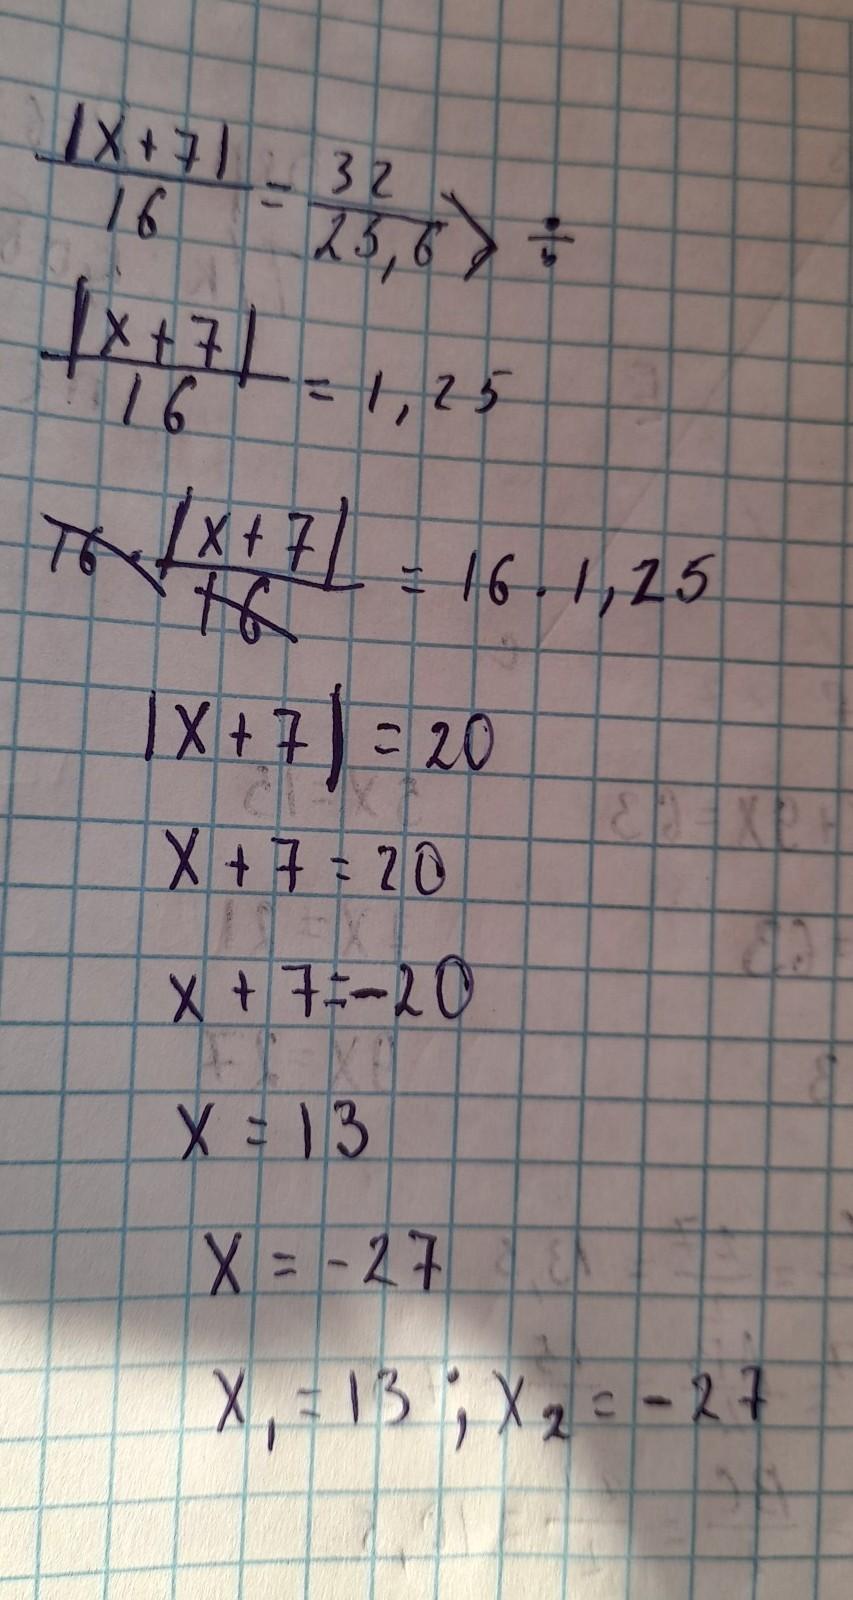 |x+7|/16 = 32/25,6 > ÷
|x+7|/16 = 1,25
16 · |x+7|/16 = 16 · 1,25
|x+7| = 20
x+7 = 20
x+7 = -20
x = 13
x = -27
x₁ = 13 ; x₂ = -27